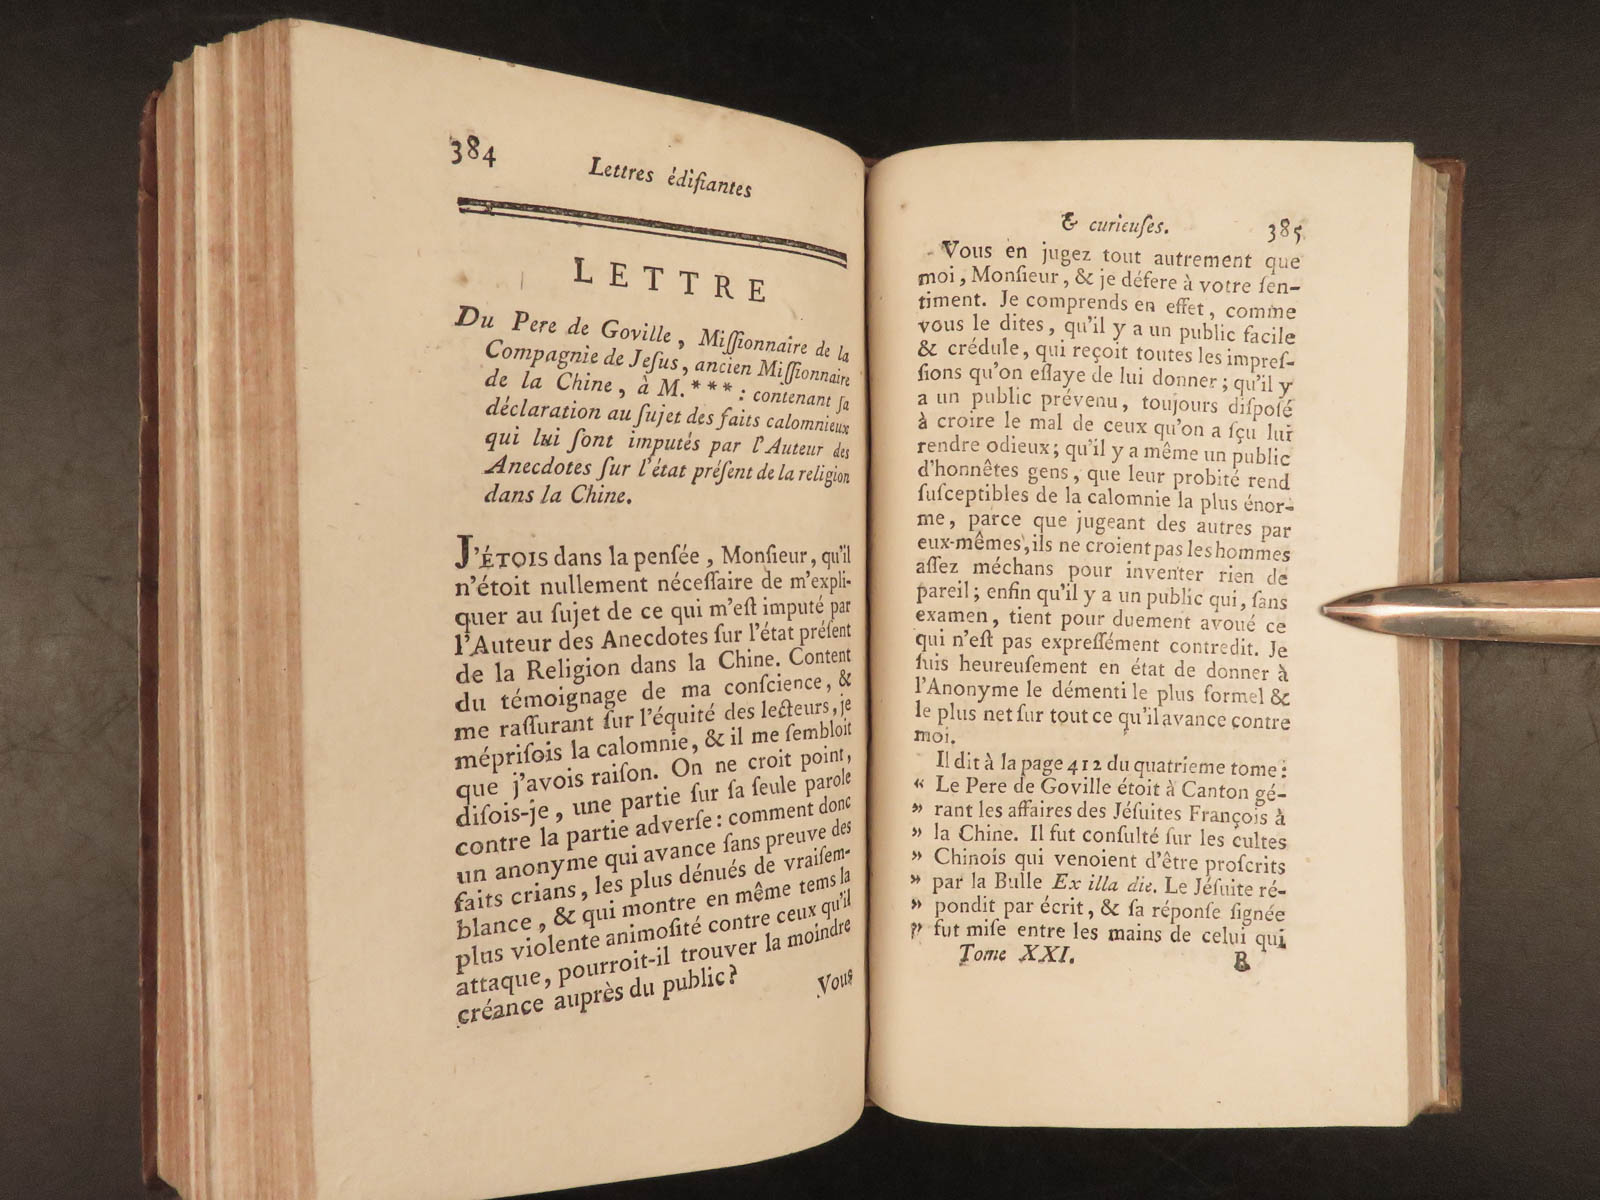 384
Lettres édifiantes
LETTRE
Du Pere de Goville, Miſſionnaire de la
Compagnie de Jeſus, ancien Miſſionnaire
de la Chine, à M. * * * : contenant ſa
déclaration au ſujet des faits calomnieux
qui lui ſont imputés par l'Auteur des
Anecdotes ſur l'état préſent de la religion
dans la Chine.
J'ÉTOIS dans la penſée, Monſieur, qu'il
n'étoit nullement néceſſaire de m'expli-
quer au ſujet de ce qui m'eſt imputé par
l'Auteur des Anecdotes ſur l'état préſent
de la Religion dans la Chine. Content
du témoignage de ma conſcience, &
me raſſurant ſur l'équité des lecteurs, je
mépriſois la calomnie, & il me ſembloit
que j'avois raiſon. On ne croit point,
diſois-je, une partie ſur ſa ſeule parole
contre la partie adverſe : comment donc
un anonyme qui avance ſans preuve des
faits crians, les plus dénués de vraiſem-
blance, & qui montre en même tems la
plus violente animoſité contre ceux qu'il
attaque, pourroit-il trouver la moindre
créance auprès du public ?
Vous
& curieuſes.
385
Vous en jugez tout autrement que
moi, Monſieur, & je défere à votre ſen-
timent. Je comprends en effet, comme
vous le dites, qu'il y a un public facile
& crédule, qui reçoit toutes les impreſ-
ſions qu'on eſſaye de lui donner ; qu'il y
a un public prévenu, toujours diſpoſé
à croire le mal de ceux qu'on a ſçu lui
rendre odieux ; qu'il y a même un public
d'honnêtes gens, que leur probité rend
ſuſceptibles de la calomnie la plus énor-
me, parce que jugeant des autres par
eux-mêmes, ils ne croient pas les hommes
aſſez méchans pour inventer rien de
pareil ; enfin qu'il y a un public qui, ſans
examen, tient pour duement avoué ce
qui n'eſt pas expreſſément contredit. Je
ſuis heureuſement en état de donner à
l'Anonyme le démenti le plus formel &
le plus net ſur tout ce qu'il avance contre
moi.
Il dit à la page 412 du quatrieme tome :
« Le Pere de Goville étoit à Canton gé-
» rant les affaires des Jéſuites François à
» la Chine. Il fut conſulté ſur les cultes
» Chinois qui venoient d'être proſcrits
» par la Bulle Ex illa die. Le Jéſuite ré-
» pondit par écrit, & ſa réponſe ſignée
» fut miſe entre les mains de celui qui
Tome XXI.
R